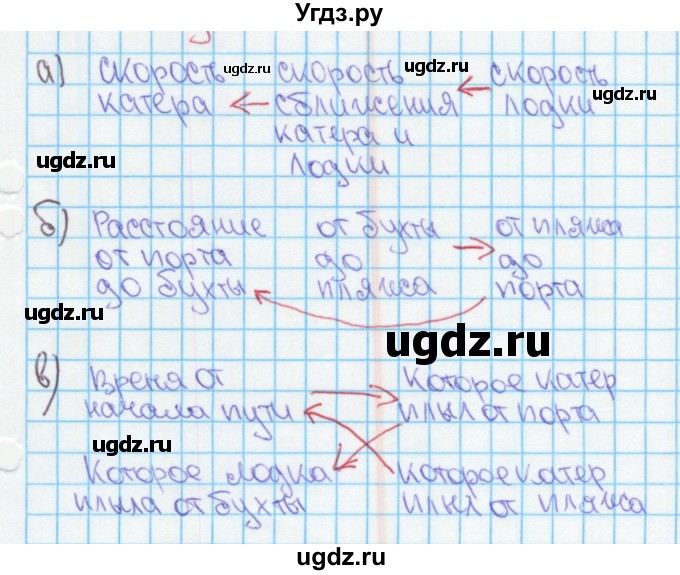 Угдз.ру
а) скорость ugdz.ru скорость ugdz.ru скорость
катера ← сближения ← лодки ugdz.ru
катера и
ugdz.ru лодки
б) Расстояние от бухты от пляжа
от порта до → до
до бухты пляжа порта
ugdz.ru
в) Время от → которое катер
начала пути плыл от порта
ugdz.ru
Которое лодка которое катер
плыла от бухты плыл от пляжа
ugdz.ru ugdz.ru
ugdz.ru